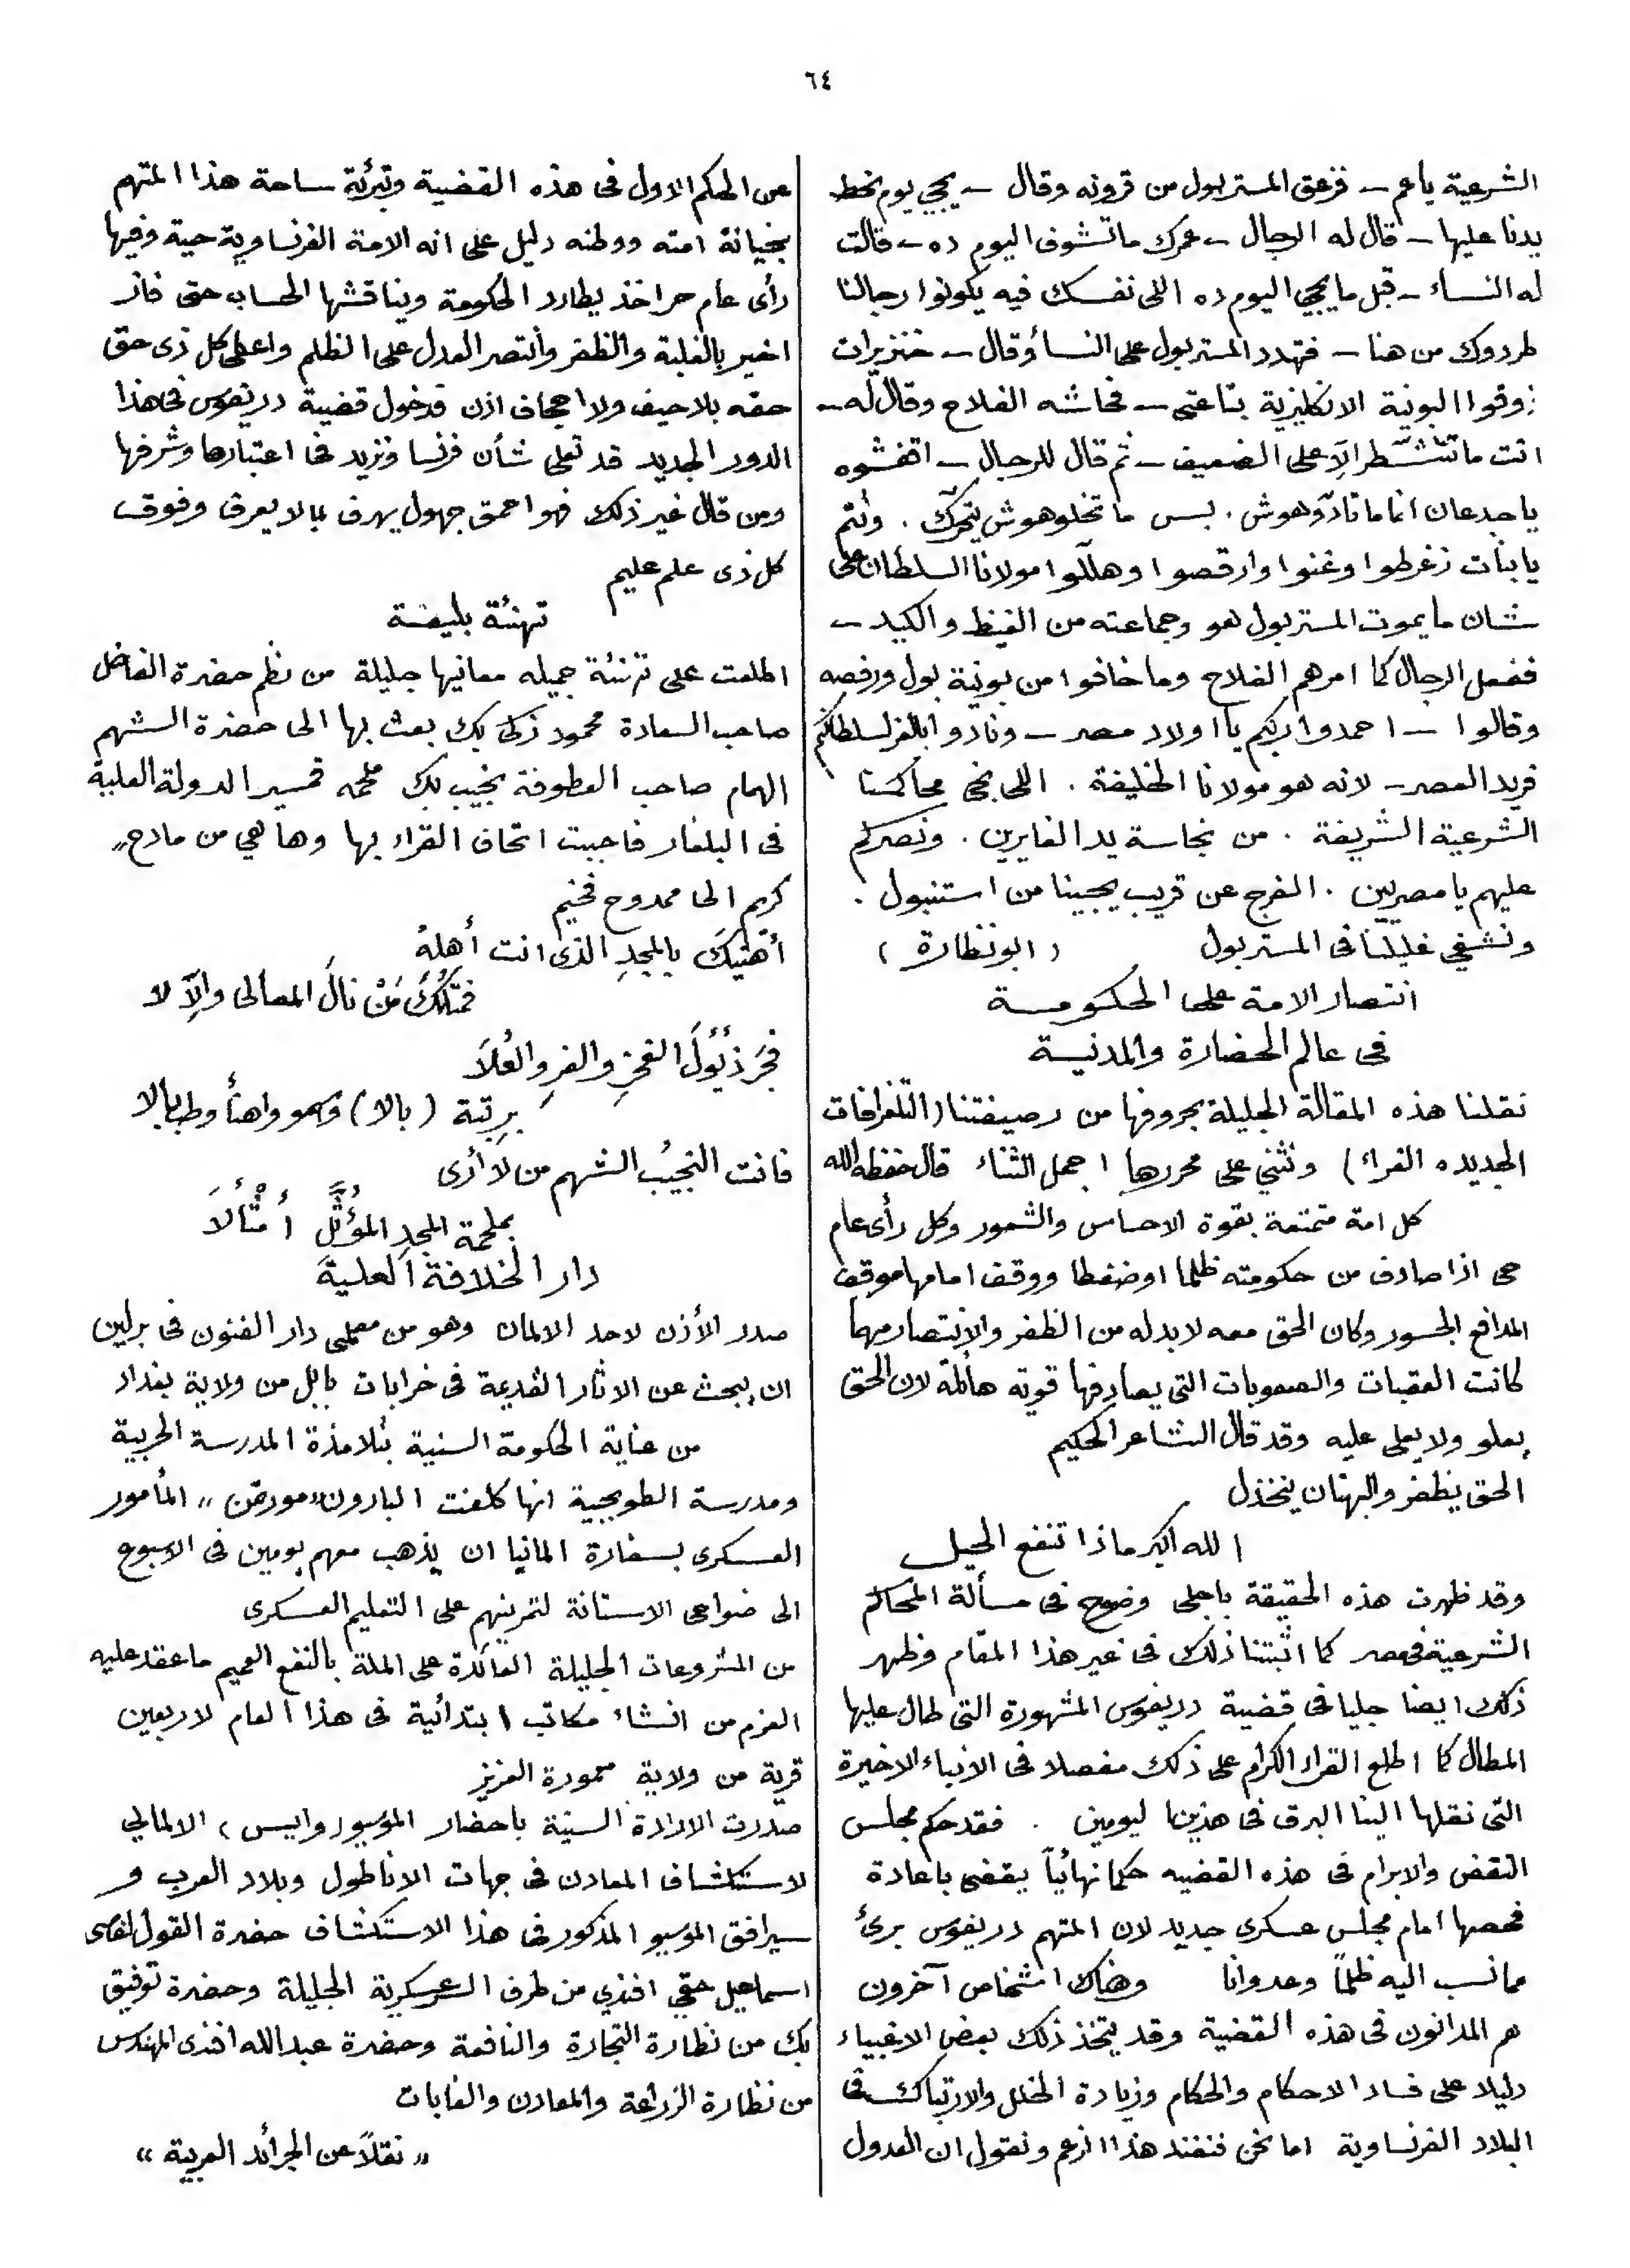 ٦٤
الشرعية ياعم ــ فزعق المستر بول من قرونه وقال ــ يجي يوم نحط
يدنا عليها ــ قال له الرجال ــ عمرك ماتشوف اليوم ده ــ قالت
له النساء ــ قبل ما يجي اليوم ده اللى نفسك فيه يكونوا رجالنا
طردوك من هنا ــ فتهدد المستر بول على النساء وقال ــ خنزيرات
ذوقوا البونية الانكليزية بتاعتى ــ فحاشه الفلاح وقال له ــ
انت ما تتشطر الاّ على الضعيف ــ ثم قال للرجال ــ اتحشوه
ياجدعان انما ماتأذوهوش . بس ما تخلوهوش يتحرّك . وأنتم
يابنات زغرطوا وغنوا وارقصوا وهللّوا مولانا السلطان على
شان ما يموت المستر بول هو وجماعته من الغيظ والكيد ــ
ففعل الرجال كما امرهم الفلاح وما خافوا من بونية بول ورفصه
وقالوا ــ احمدوا ربكم يا اولاد مصر ــ ونادوا بالعز لسلطانكم
فريد العصر ــ لانه هو مولانا الخليفة . اللى نجى محاكمنا
الشرعية الشريفة . من نجاسة يد الغايرين . ونصركم
عليهم يا مصريين . الفرج عن قريب يجينا من استنبول .
ونشفي غليلنا فى المستر بول ( ابو نظارة )
انتصار الامة على الحكومة
فى عالم الحضارة والمدنية
نقلنا هذه المقالة الجليلة بحروفها من رصيفتنا (التلغرافات
الجديده الغراء) ونثني على محررها اجمل الثناء قال حفظه الله
كل امة متمتعة بقوة الاحساس والشعور وكل رأى عام
حى اذا صادف من حكومته ظلما او ضغطا ووقف امامها موقف
المدافع الجسور وكان الحق معه لا بد له من الظفر والانتصار مهما
كانت العقبات والصعوبات التى يصادفها قوية هائلة لان الحق
يعلو ولا يعلى عليه وقد قال الشاعر الحكيم
الحق يظفر والبهتان ينخذل
الله اكبر ماذا تنفع الحيل
وقد ظهرت هذه الحقيقة باجلى وضوح فى مسألة المحاكم
الشرعية فى مصر كما اثبتنا ذلك فى غير هذا المقام وظهر
ذلك ايضا جليا فى قضية دريفوس المشهورة التى طال عليها
المطال كما اطلع القراء الكرام على ذلك مفصلا فى الانباء الاخيرة
التى نقلها الينا البرق فى هذين اليومين . فقد حكم مجلس
النقض والابرام فى هذه القضيه حكما نهائياً يقضى باعادة
فحصها امام مجلس عسكرى جديد لان المتهم دريفوس برئ
مما نسب اليه ظلماً وعدوانا وهناك اشخاص آخرون
هم المدانون فى هذه القضية وقد يتخذ ذلك بعض الاغبياء
دليلا على فساد الاحكام والحكام وزيادة الخلل والارتباك فى
البلاد الفرنساوية اما نحن فنفند هذا الزعم ونقول ان العدول
عن الحكم الاول فى هذه القضية وتبرئة ساحة هذا المتهم
بخيانة امته ووطنه دليل على انه الامة الفرنساوية حية وفيها
رأى عام حر اخذ يطارد الحكومة ويناقشها الحساب حتى فاز
اخير بالغلبة والظفر وانتصر العدل على الظلم واعطى كل ذى حق
حقه بلا حيف ولا اجحاف اذن فدخول قضية دريفوس فى هذا
الدور الجديد قد تعلى شأن فرنسا وتزيد فى اعتبارها وشرفها
ومن قال غير ذلك فهو احمق جهول يهرف بما لا يعرف وفوق
كل ذى علم عليم
تهنئة بليغة
اطلعت على تهنئة جميله معانيها جليلة من نظم حضرة الفاضل
صاحب السعادة محمود زكى بك بعث بها الى حضرة الشهم
الهمام صاحب العطوفة نجيب بك ملحمه قمسير الدولة العلية
فى البلغار فاحببت اتحاف القراء بها وها هي من مادح
كريم الى ممدوح فخيم
أهنّيكَ بالمجدِ الذى انت أهلهُ
فمثلُكَ مَنْ نالَ المعالى والاّ لا
فجرّ ذيُولَ الفخرِ والعزِ والعُلاَ
برتبة (بالا) وسمو واهنأ وطب بالا
فانت النجيبُ الشهم من لا أرى
بملحمة المجدِ المؤثّل أمثَالاَ
دار الخلافة العلية
صدر الأذن لاحد الالمان وهو من معلمى دار الفنون فى برلين
ان يبحث عن الاثار القديمة فى خرابات بابل من ولاية بغداد
من عناية الحكومة السنية بتلامذة المدرسة الحربية
ومدرسة الطوبجية انها كلفت البارون „ مورغن „ المأمور
العسكرى بسفارة المانيا ان يذهب معهم يومين فى الاسبوع
الى ضواحى الاستانة لتمرينهم على التعليم العسكرى
من المشروعات الجليلة العائدة على الملة بالنفع العميم ما عقد عليه
العزم من انشاء مكاتب ابتدائية فى هذا العام لاربعين
قرية من ولاية معمورة العزيز
صدرت الارادة السنية باحضار الموسيو (وايس) الالمالي
لاستكشاف المعادن فى جهات الاناطول وبلاد العرب و
سيرافق الموسيو المذكور فى هذا الاستكشاف حضرة القول اغاسى
اسماعيل حقي افندي من طرف العسكرية الجليلة وحضرة توفيق
بك من نظارة التجارة والنافعة وحضرة عبدالله افندى المهندس
من نظارة الزراعة والمعادن والغابات
„ نقلاً عن الجرائد العربية „